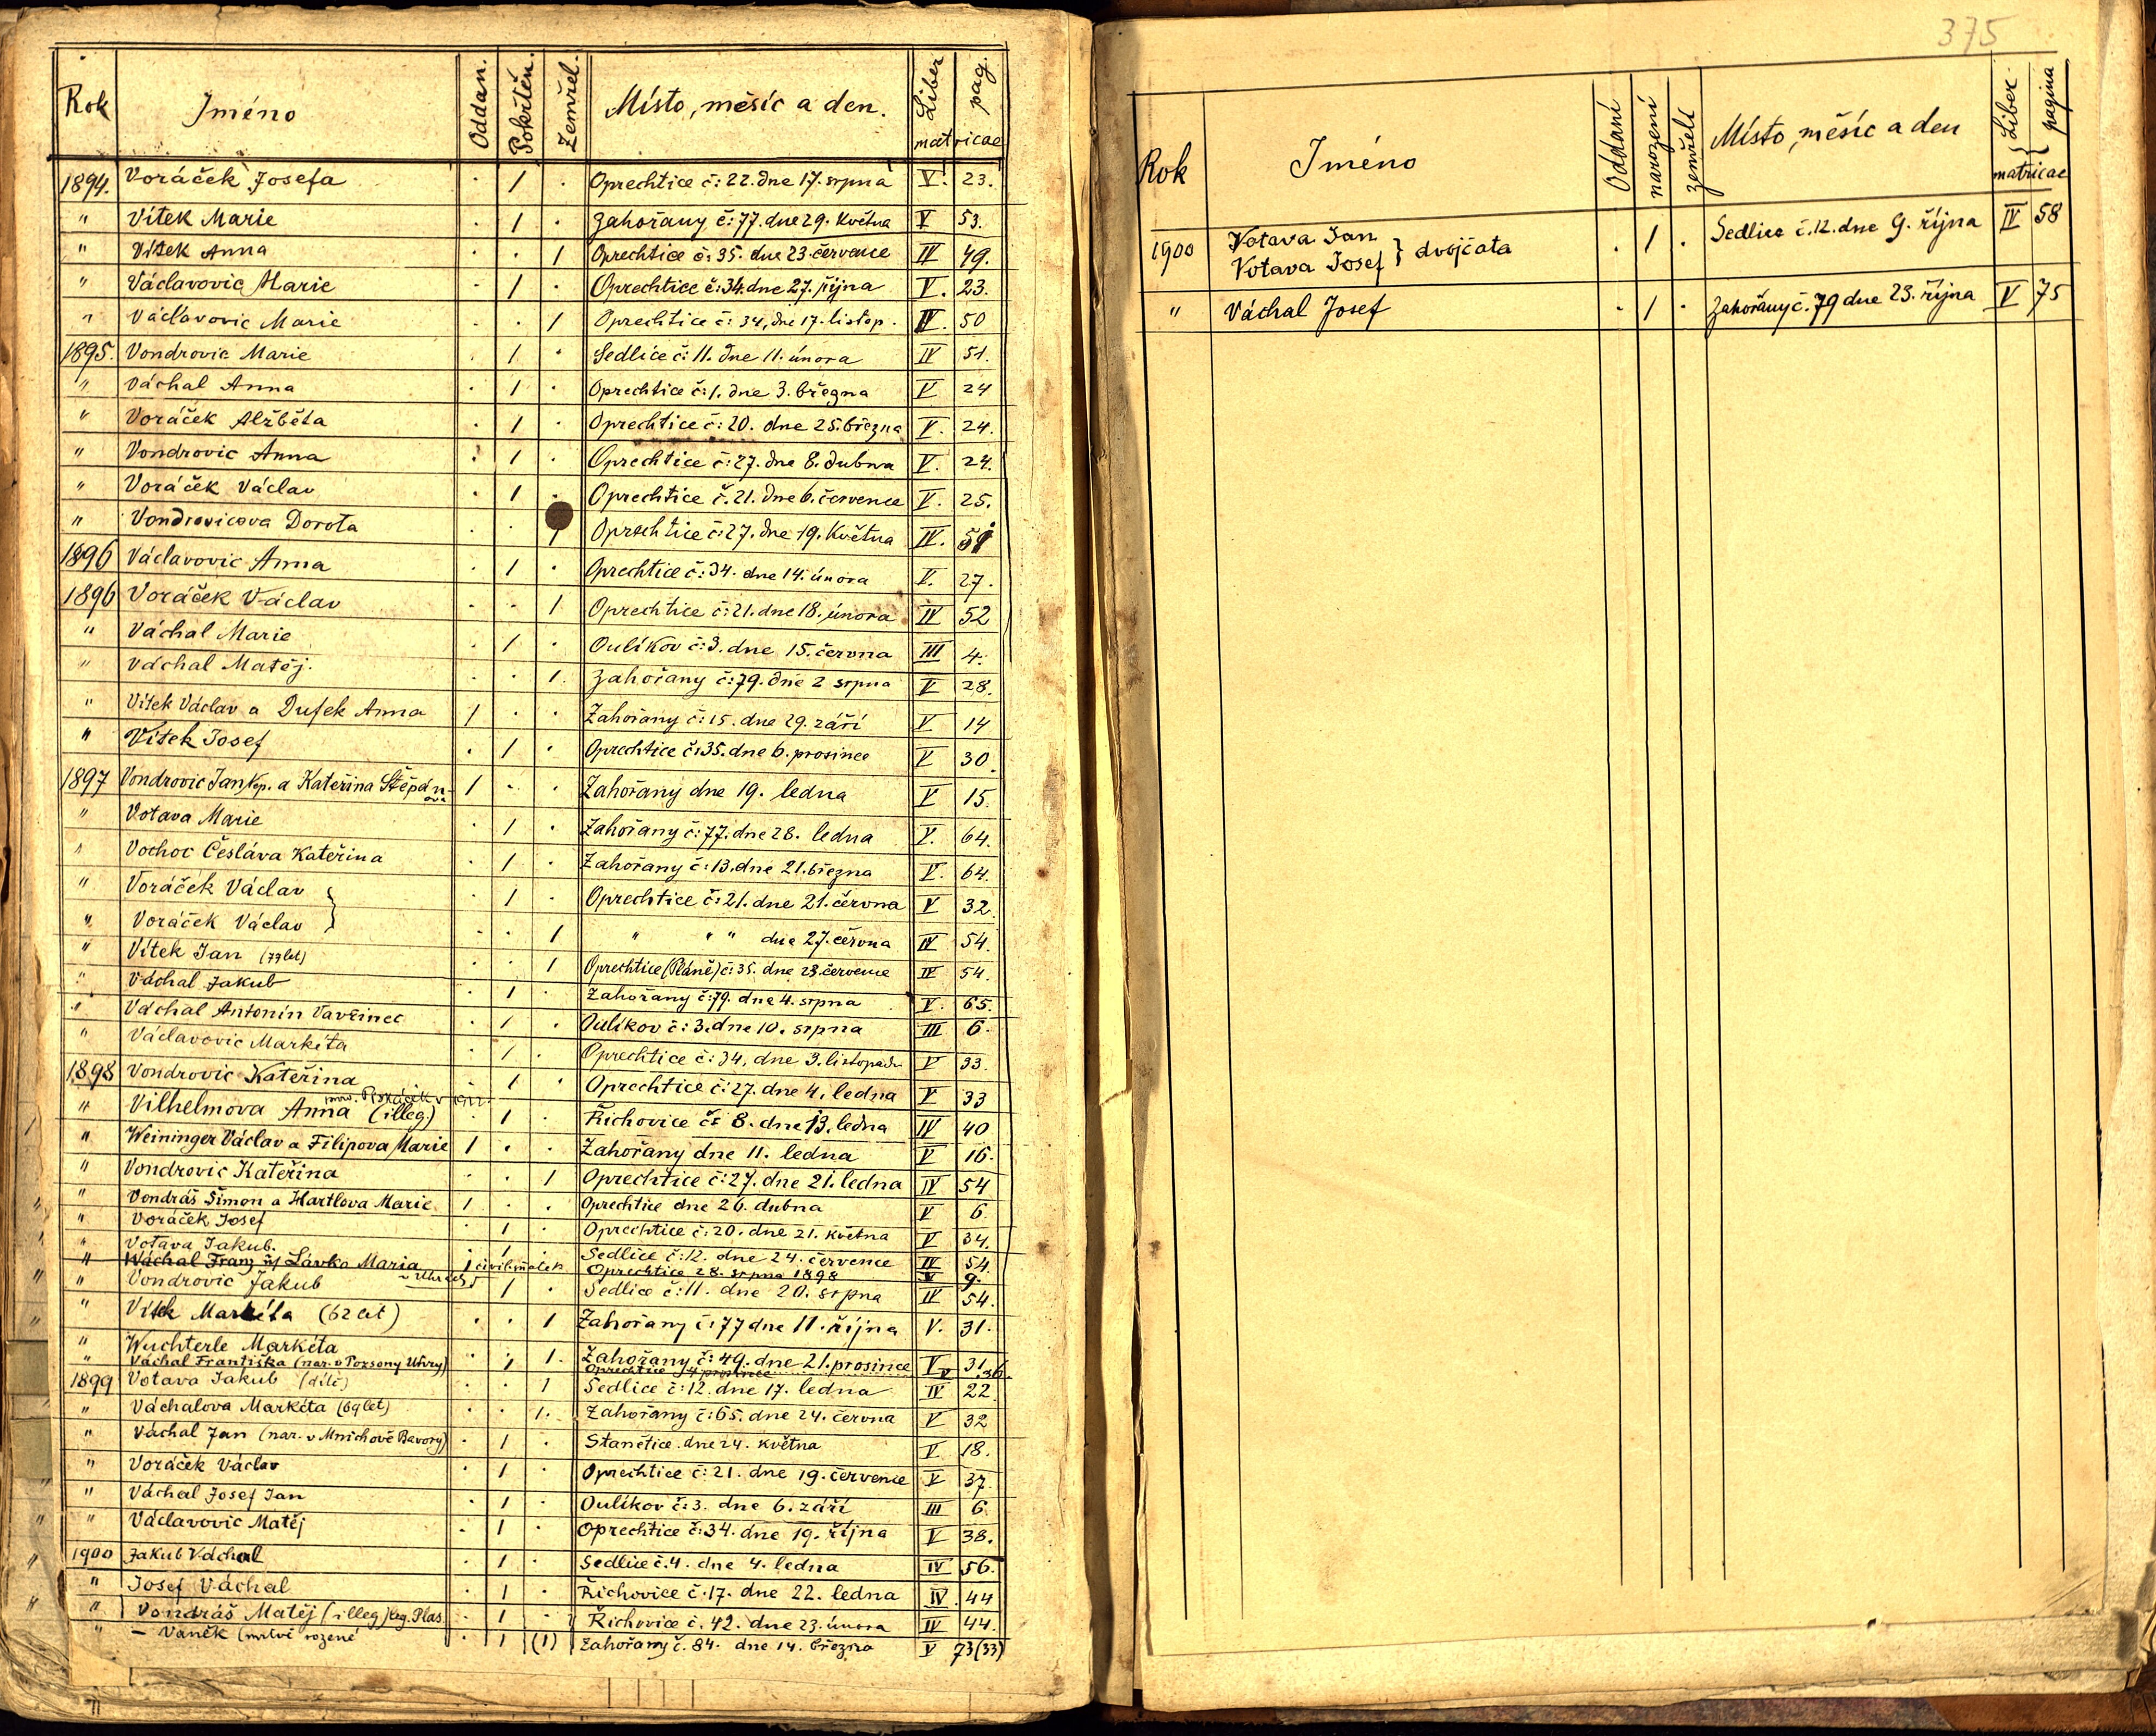 Rok Jméno Oddan. Pokřtěn. Zemřel. Místo, měsíc a den. Liber pag. matricae
1894. Voráček Josefa . 1 . Oprechtice č: 22. dne 17. srpna V. 23.
" Vítek Marie . 1 . Zahořany č: 77. dne 29. května V 53.
" Vítek Anna . . 1 Oprechtice č: 35. dne 23. července IV 49.
" Václavovic Marie . 1 . Oprechtice č: 34. dne 27. října V. 23.
" Václavovic Marie . . 1 Oprechtice č: 34, dne 17. listop. IV. 50
1895. Vondrovic Marie . 1 . Sedlice č: 11. dne 11. února IV 51.
" Váchal Anna . 1 . Oprechtice č: 1. dne 3. března V 24
" Voráček Alžběta . 1 . Oprechtice č: 20. dne 25. března V. 24.
" Vondrovic Anna . 1 . Oprechtice č: 27. dne 8. dubna V. 24.
" Voráček Václav . 1 . Oprechtice č. 21. dne 6. července V. 25.
" Vondrovicova Dorota . . 1 Oprechtice č: 27. dne 19. května IV. 51
1896 Václavovic Anna . 1 . Oprechtice č: 34. dne 14. února V. 27.
1896 Voráček Václav . . 1 Oprechtice č: 21. dne 18. února IV 52
" Váchal Marie . 1 . Oulíkov č: 3. dne 15. června III 4.
" Váchal Matěj. . . 1. Zahořany č: 79. dne 2 srpna V 28.
" Vítek Václav a Dufek Anna 1 . . Zahořany č: 15. dne 29. září V 14
" Vítek Josef . 1 . Oprechtice č: 35. dne 6. prosince V 30.
1897 Vondrovic Jan, kop. a Kateřina Štěpánova 1 . . Zahořany dne 19. ledna V 15.
" Votava Marie . 1 . Zahořany č: 77. dne 28. ledna V. 64.
" Vochoc Česláva Kateřina . 1 . Zahořany č: 13. dne 21. března V. 64.
" Voráček Václav } . 1 . Oprechtice č: 21. dne 21. června V 32.
" Voráček Václav } . . 1 " " " dne 27. června IV 54.
" Vítek Jan (79 let) . . 1 Oprechtice (Pláně) č: 35. dne 23. července IV 54.
" Váchal Jakub . 1 . Zahořany č: 79. dne 4. srpna V. 65.
" Váchal Antonín Vavřinec . 1 . Oulíkov č: 3. dne 10. srpna III 6.
" Václavovic Markéta . 1 . Oprechtice č: 34, dne 3. listopadu V 33.
1898 Vondrovic Kateřina . 1 . Oprechtice č: 27. dne 4. ledna V 33
" Vilhelmova Anna (illeg.) . 1 . Řichovice č: 8. dne 13. ledna IV 40
" Weininger Václav a Filipova Marie 1 . . Zahořany dne 11. ledna V 16.
" Vondrovic Kateřina . . 1 Oprechtice č: 27. dne 21. ledna IV 54
" Vondráš Šimon a Hartlova Marie 1 . . Oprechtice dne 26. dubna V 6.
" Voráček Josef . 1 . Oprechtice č: 20. dne 21. května V 34.
" Votava Jakub. . 1 . Sedlice č: 12. dne 24. července IV 54.
" Váchal Franz Lávka Maria 1 civil. Oprechtice 28. srpna 1898 V 9.
" Vondrovic Jakub . 1 . Sedlice č: 11. dne 20. srpna IV 54.
" Vítek Markéta (62 let) . . 1 Zahořany č: 77 dne 11. října V. 31.
" Wuchterle Markéta . . 1. Zahořany č: 49. dne 21. prosince V 31.
" Váchal Františka (nar. v Pozsony Uhry) . 1 Oprechtice 4 prosince V 36.
1899 Votava Jakub (dítě) . . 1 Sedlice č: 12. dne 17. ledna IV 22
" Váchalova Markéta (69 let) . . 1. Zahořany č: 65. dne 24. června V 32
" Váchal Jan (nar. v Mnichově Bavory) . 1 . Stanětice. dne 24. května V 18.
" Voráček Václav . 1 . Oprechtice č: 21. dne 19. července V 37.
" Váchal Josef Jan . 1 . Oulíkov č: 3. dne 6. září III 6
" Václavovic Matěj . 1 . Oprechtice č: 34. dne 19. října V 38.
1900 Jakub Váchal . 1 . Sedlice č. 4. dne 4. ledna IV 56.
" Josef Váchal . 1 . Řichovice č. 17. dne 22. ledna IV. 44
" Vondráš Matěj (illeg) leg. Plas . 1 . Řichovice č. 42. dne 23. února IV 44.
" – Vaněk (mrtvě rozené . 1 (1) Zahořany č. 84. dne 14. března V 73(33)
375
Rok Jméno Oddaní narození zemřelí Místo, měsíc a den Liber pagina matricae
1900 Votava Jan
Votava Josef } dvojčata . 1 . Sedlice č. 12. dne 9. října IV 58
" Váchal Josef . 1 . Zahořany č. 79 dne 23. října V 75